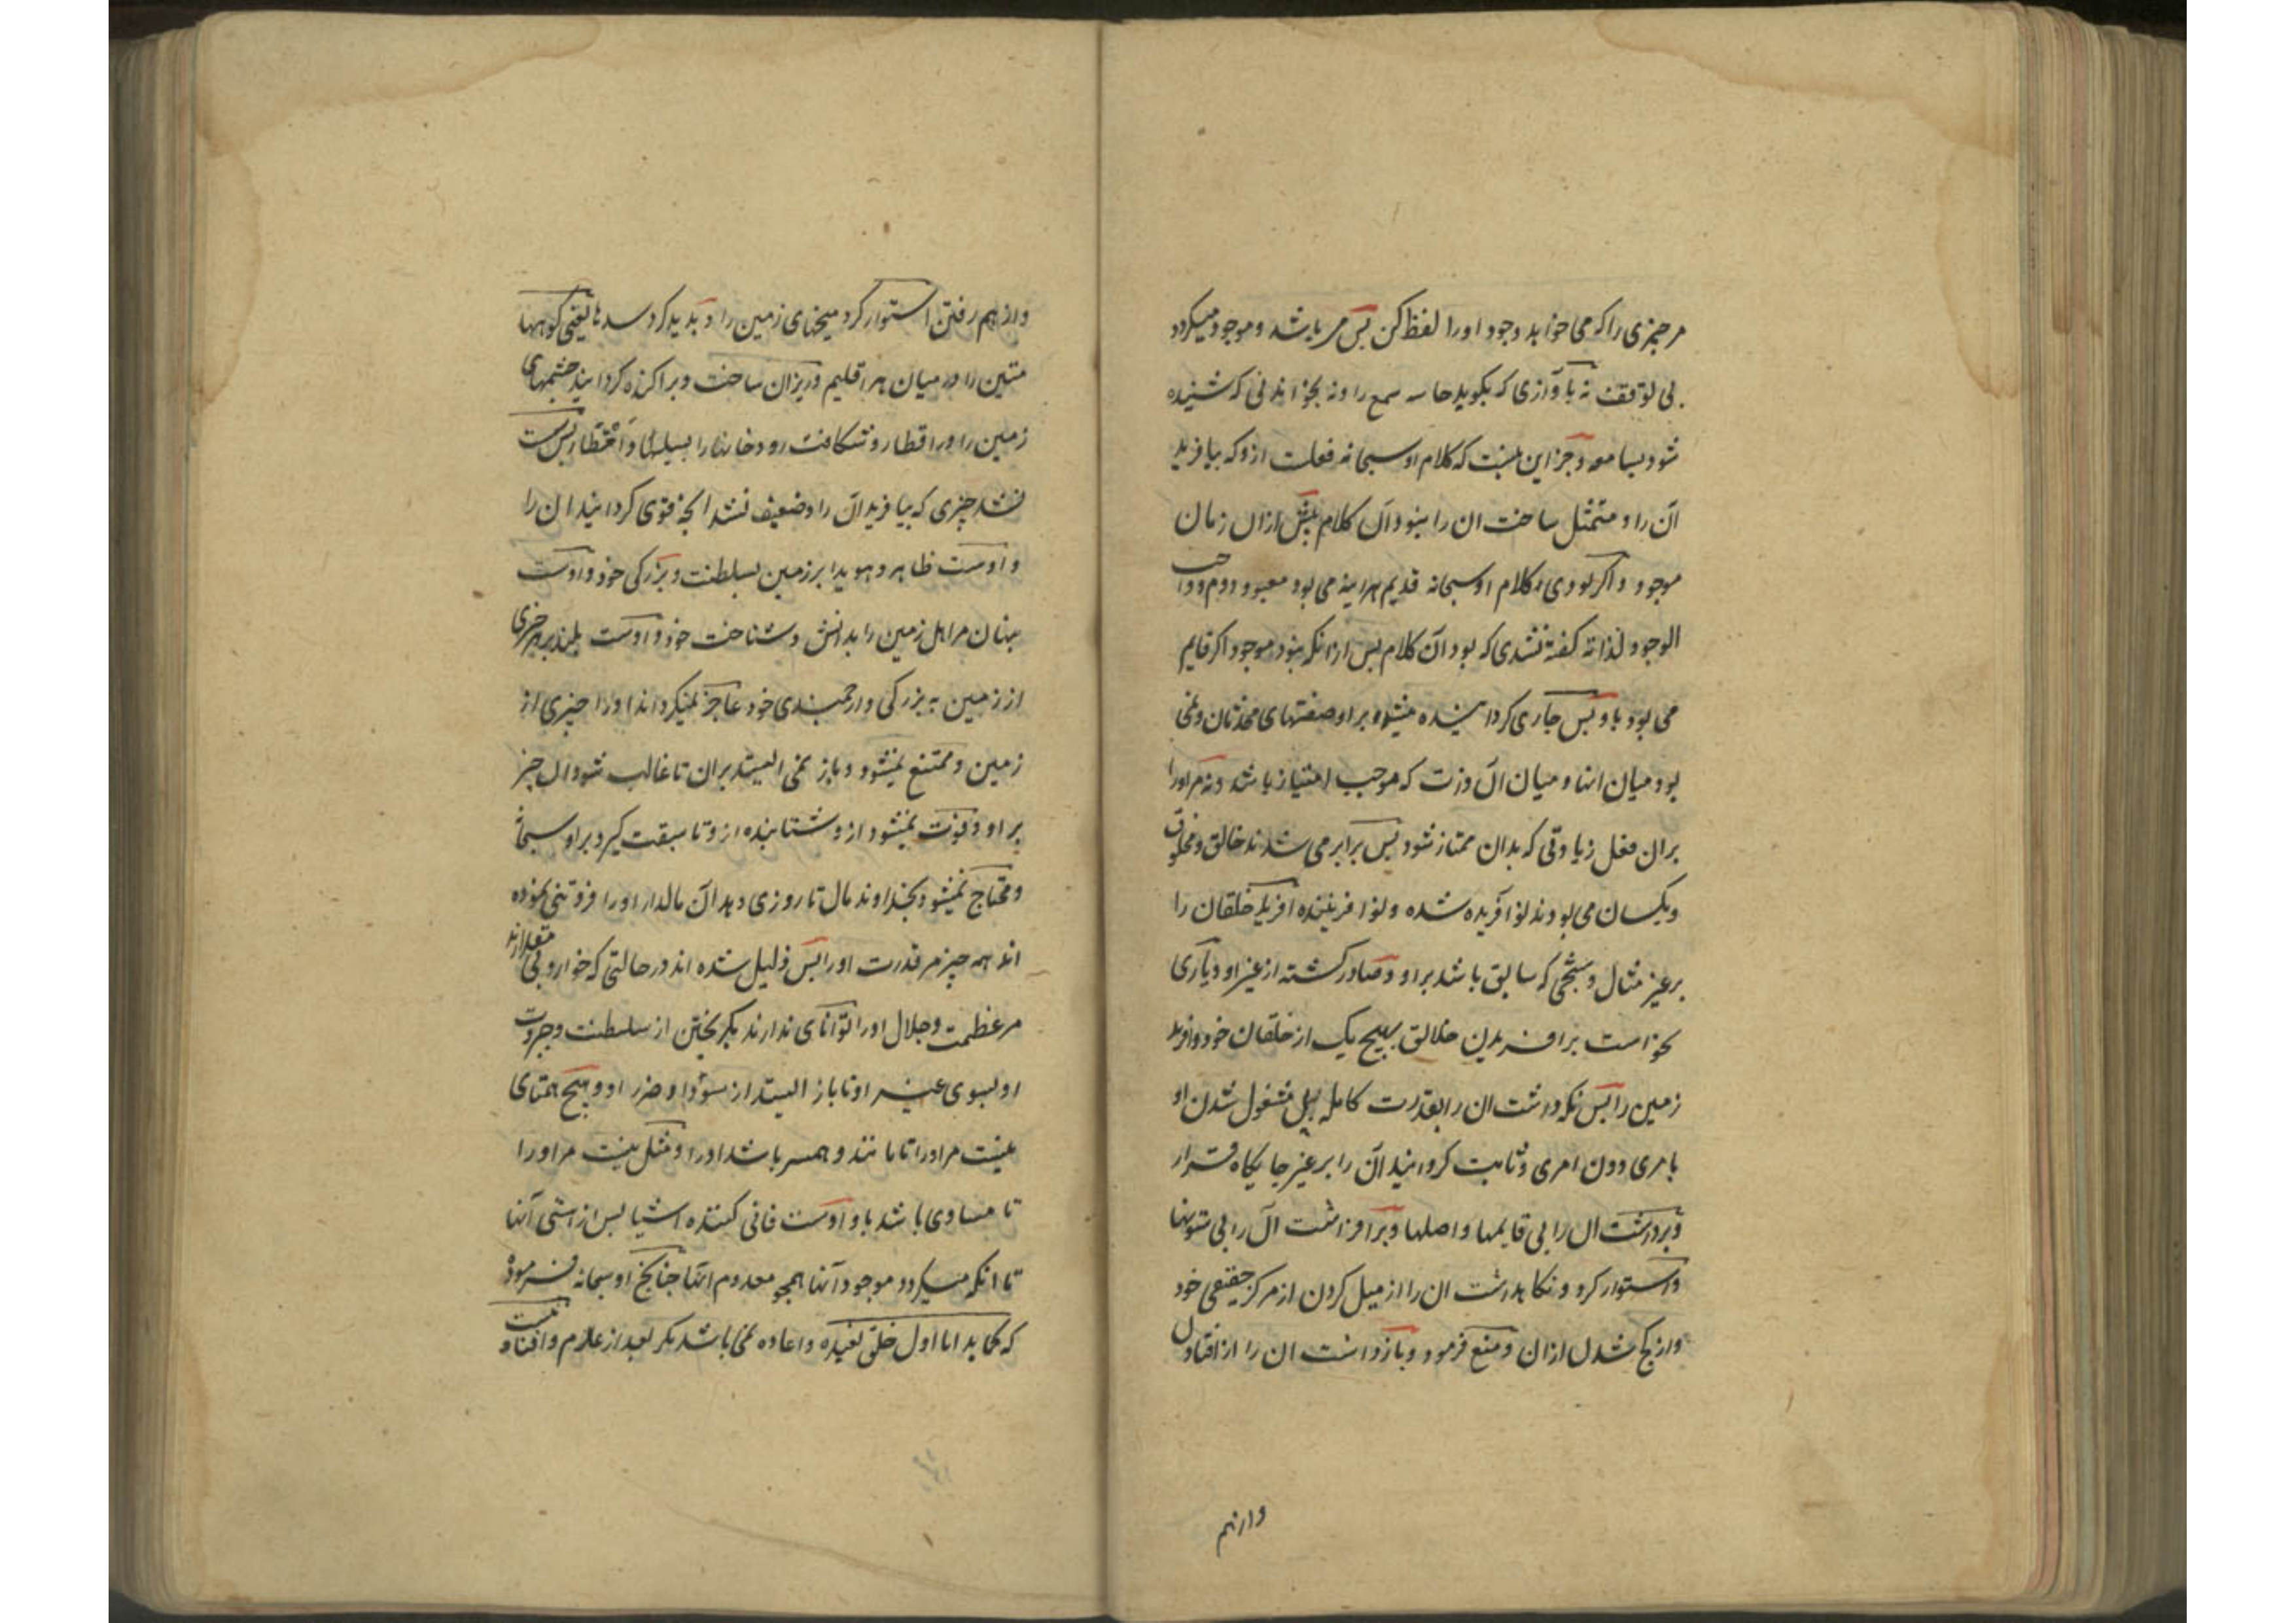 مر چیزی را که می خواهد وجود او را لفظ کن پس می باشد و موجود میکردد
بی توقف نه بآوازی که بکوبد حاسه سمع را و نه بخواندنی که شنیده
شود بسامعه و جز این نیست که کلام او سبحانه فعلست ازو که بیافرید
آن را و متمثل ساخت ان را و نبود آن کلام پیش ازان زمان
موجود و اکر بودی کلام او سبحانه قدیم هراینه می بود معبود دوم و واجب
الوجود لذاته کفته نشدی که بود آن کلام پس ازانکه نبود موجود اکر قایم
می بود باو پس جاری کردانیده میشد بر او صفتهای محدثان و نمی
بود میان انها و میان آن ذات که موجب امتیاز باشد و نه مر او را
بران فعل زیادتی که بدان ممتاز شود پس برابر می شدند خالق و مخلوق
و یکسان می بودند نو آفریده شده و نو افریننده آفرید خلقان را
بر غیر مثال و سنجی که سابق باشد بر او و صادر کشته از غیر او و یاری
نخواست بر افریدن خلایق بهیچ یک از خلقان خود و آفرید
زمین را پس نکه داشت ان را بقدرت کامله بی مشغول شدن او
بامری دون امری و ثابت کردانید آن را بر غیر جایکاه قرار
و برداشت ان را بی قایمها و اصلها و برافراشت آن را بی ستونها
و استوار کرد و نکاهداشت ان را از میل کردن از مرکز حقیقی خود
و از کج شدن ازان و منع فرمود و بازداشت ان را از افتادن
و از هم
و از هم رفتن استوار کرد میخهای زمین را و پدید کرد سدها یعنی کوهها
متین را در میان هر اقلیم و ریزان ساخت و پراکنده کردانید چشمهای
زمین را در اقطار و شکافت رودخانها را پس سست
نشد چیزی که بیافرید آن را و ضعیف نشد آنچه قوی کردانید ان را
و اوست ظاهر و هویدا بر زمین بسلطنت و بزرکی خود و اوست
پنهان مر اهل زمین را بدانش و شناخت خود و اوست بلند بر هر چیزی
از زمین به بزرکی و ارجمندی خود عاجز نمیکرداند او را چیزی از
زمین و ممتنع نمیشود و باز نمی ایستد بران تا غالب شود ان چیز
بر او و فوت نمیشود ازو شتابنده ازو تا سبقت کیرد بر او سبحانه
و محتاج نمیشود بخداوند مال تا روزی دهد آن مالدار او را فروتنی نموده
اند همه چیز مر قدرت او را پس ذلیل شده اند در حالتی که خوار و بی مقدارند
مر عظمت و جلال او را توانای ندارند بکریختن از سلطنت و جبروت
او بسوی غیر او تا باز ایستد از سود او و ضرر او و هیچ همتای
نیست مر او را تا مانند و همسر باشد او را و مثل نیست مر او را
تا مساوی باشد باو و اوست فانی کننده اشیا پس از هستی آنها
تا انکه میکردد موجود آنها همچو معدوم انها چنانچه او سبحانه فرموده
که کما بدانا اول خلق نعیده و اعاده نمی باشد مکر بعد از عدم و نیست افناء